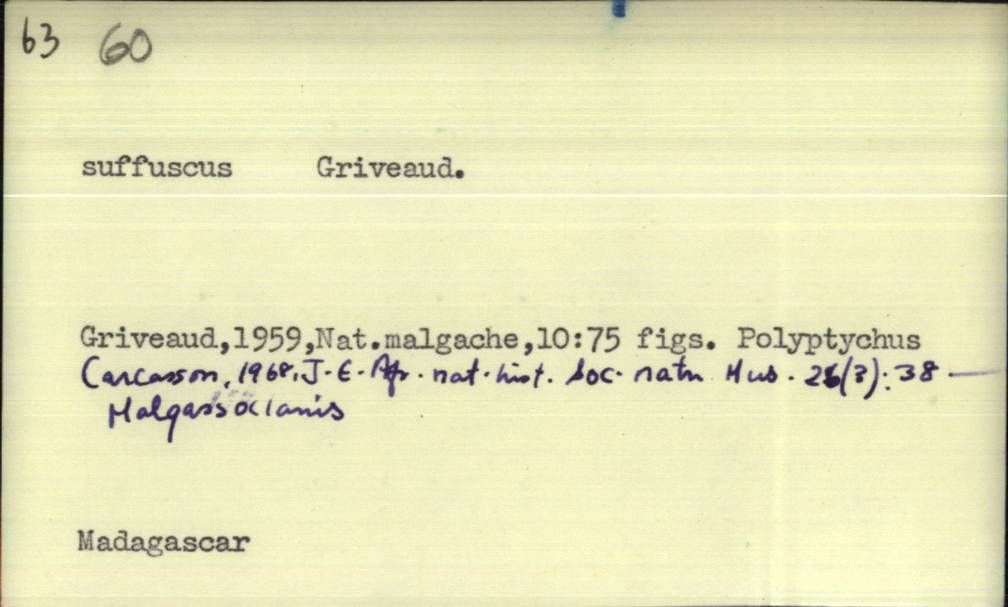 63 60
suffuscus Griveaud.
Griveaud,1959,Nat.malgache,10:75 figs. Polyptychus
Carcasson, 1968, J. E. Afr. nat. hist. Soc. natn Mus. 26(3): 38 —
Malgassoclanis
Madagascar